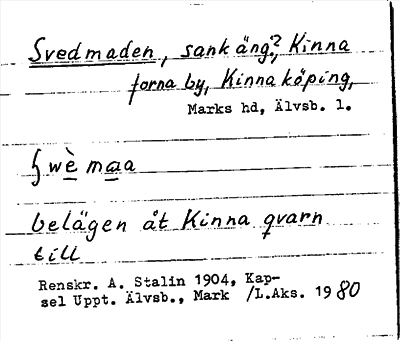 Svedmaden, sank äng?, Kinna
forna by, Kinna köping,
Marks hd, Älvsb. l.
§wè maa
belägen åt Kinna qvarn
till
Renskr. A. Stalin 1904, Kap-
sel Uppt. Älvsb., Mark /L.Aks. 1980